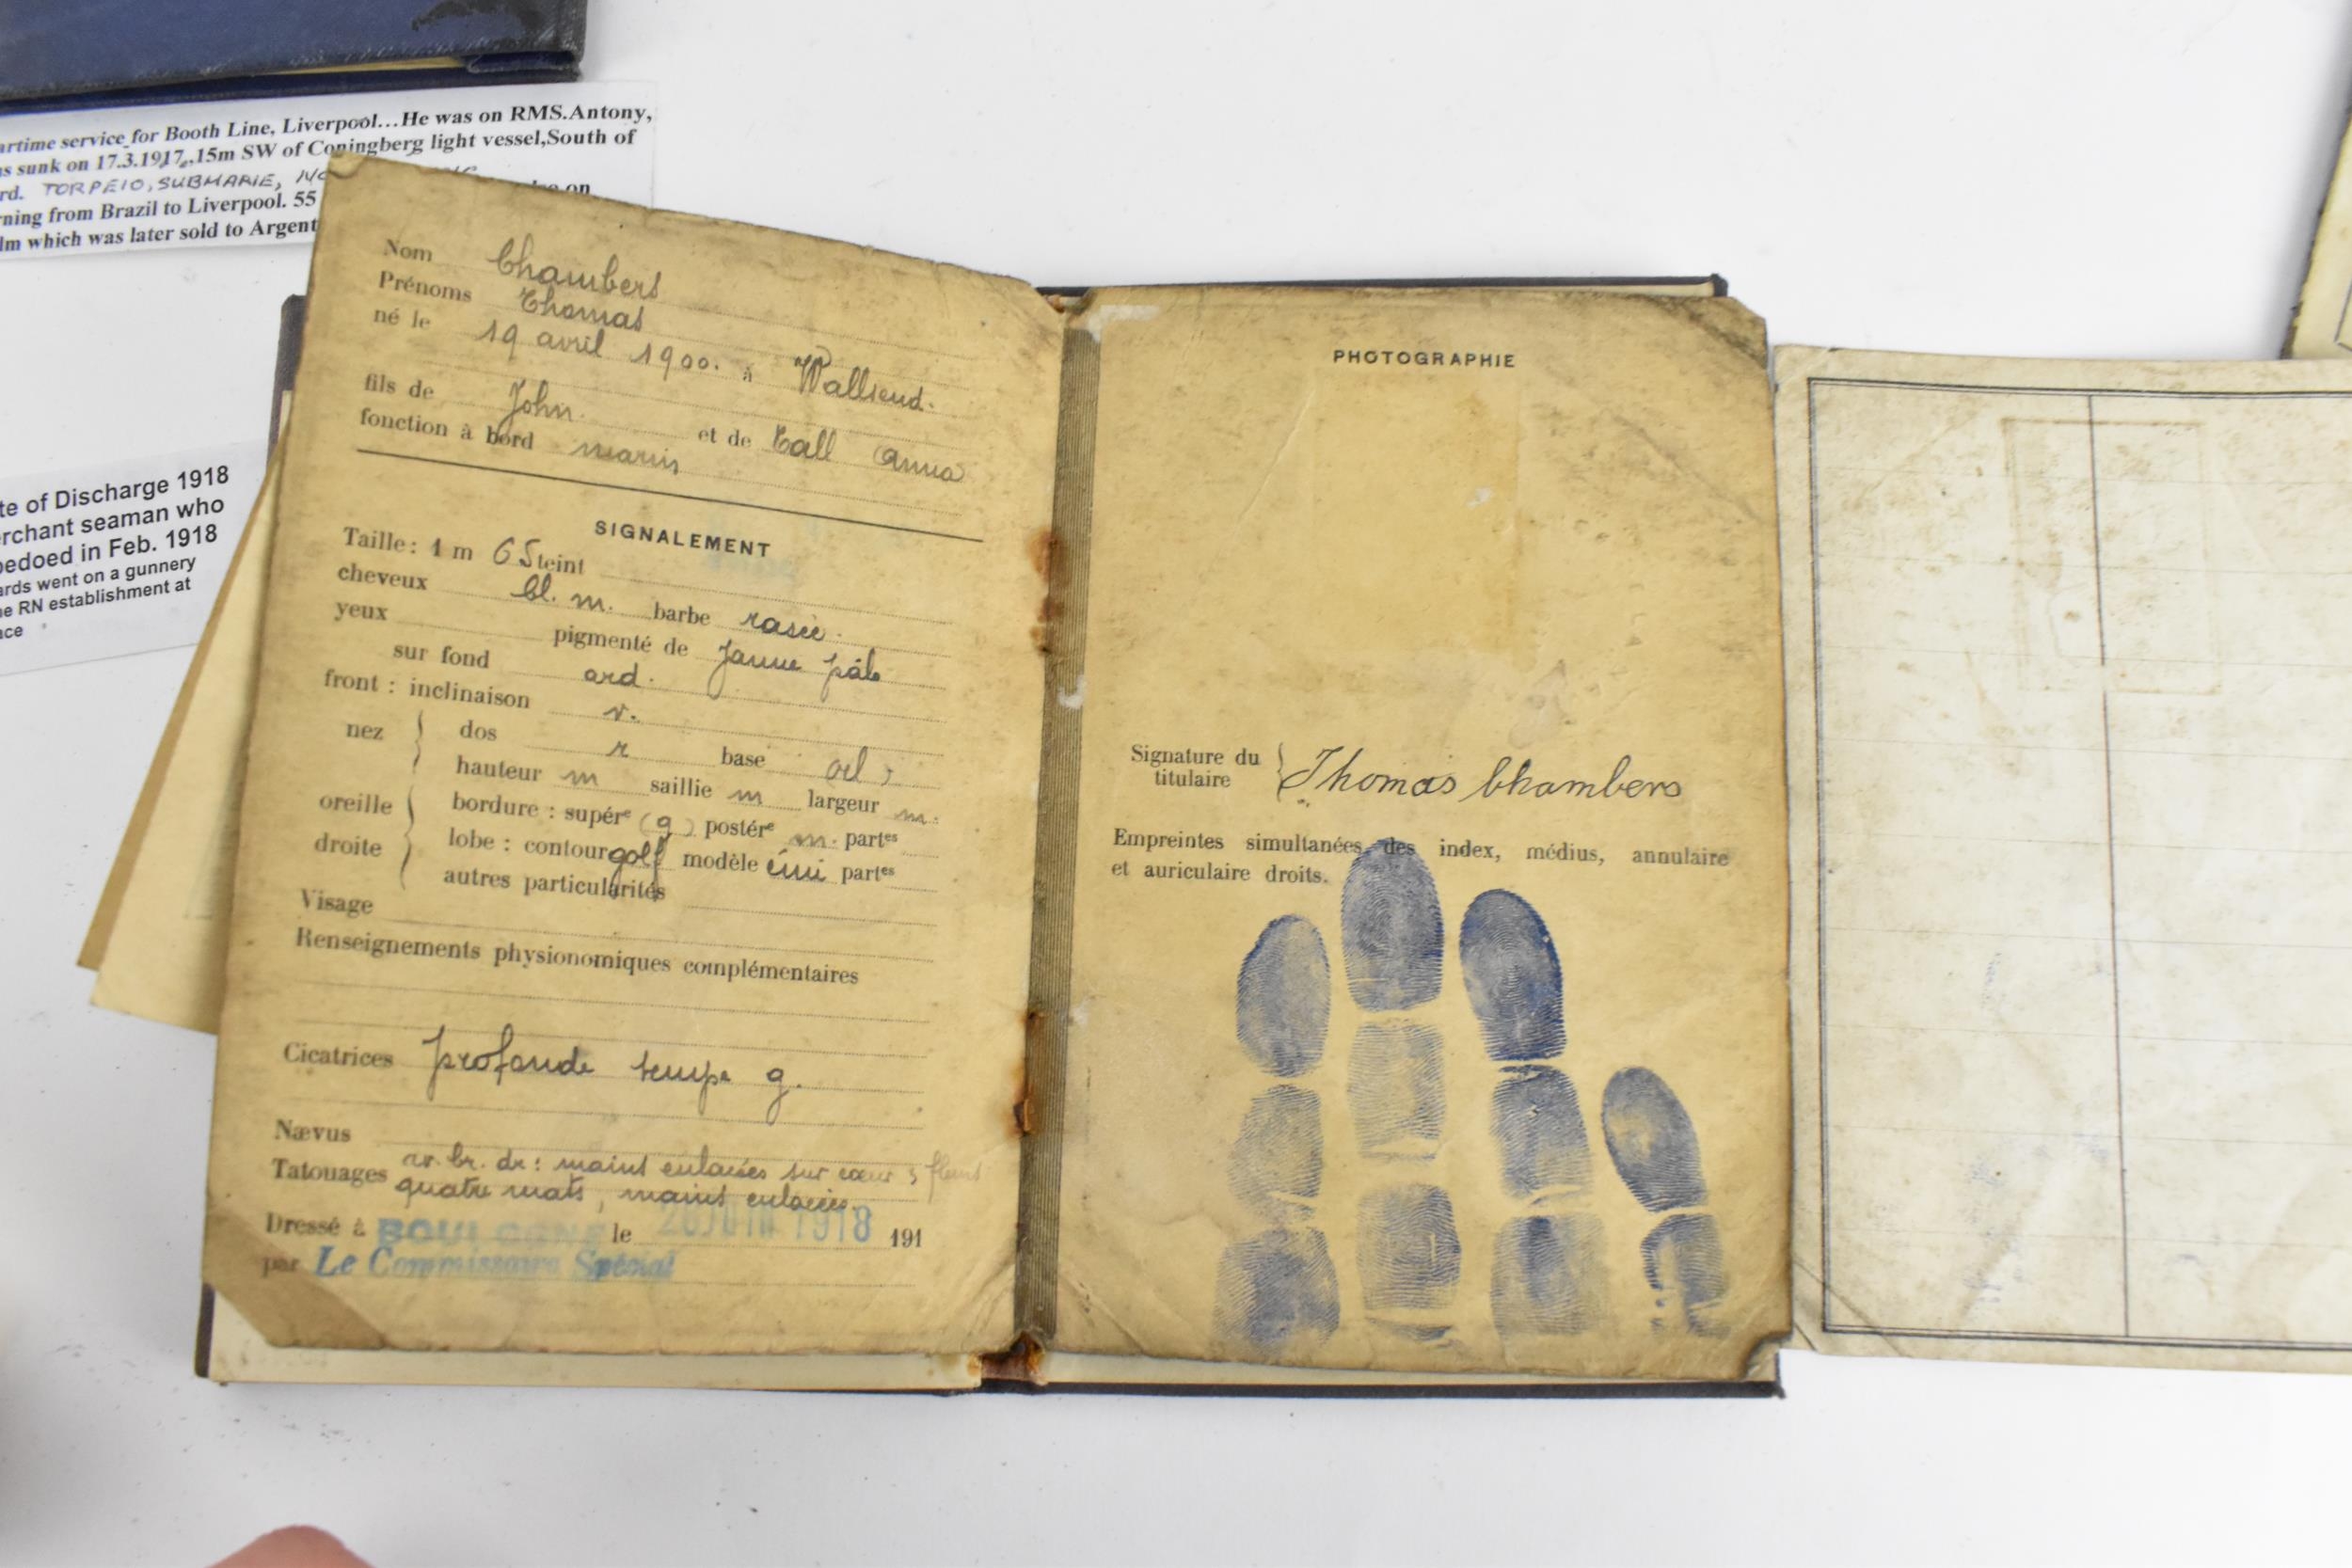 artime service for Booth Line, Liverpool...He was on RMS.Antony,
s sunk on 17.3.1917,,15m SW of Coningberg light vessel,South of
rd. TORPEIO, SUBMARIE,
rning from Brazil to Liverpool. 55
lm which was later sold to Argent
te of Discharge 1918
rchant seaman who
pedoed in Feb. 1918
ards went on a gunnery
e RN establishment at
ce
Nom Chambers
Prénoms Thomas
né le 19 avril 1900. à Wallsend.
fils de John. et de Tall Anna
fonction à bord marin
SIGNALEMENT
Taille : 1 m 65 teint
cheveux bl. m. barbe rasée.
yeux pigmenté de jaune pâle
sur fond ard.
front : inclinaison v.
nez dos r base
hauteur m saillie m largeur m.
oreille droite bordure : supérᵉ (g) postérᵉ m. partᵉˢ
lobe : contour golf modèle partᵉˢ
autres particularités
Visage
Renseignements physionomiques complémentaires
Cicatrices profonde tempe g.
Nævus
Tatouages av. br. dr : mains enlacées sur cœur 3 fleurs
quatre mats, mains enlacées.
Dressé à BOULOGNE le 26 JUIN 1918 191
par Le Commissaire Spécial
PHOTOGRAPHIE
Signature du titulaire Thomas Chambers
Empreintes simultanées des index, médius, annulaire
et auriculaire droits.